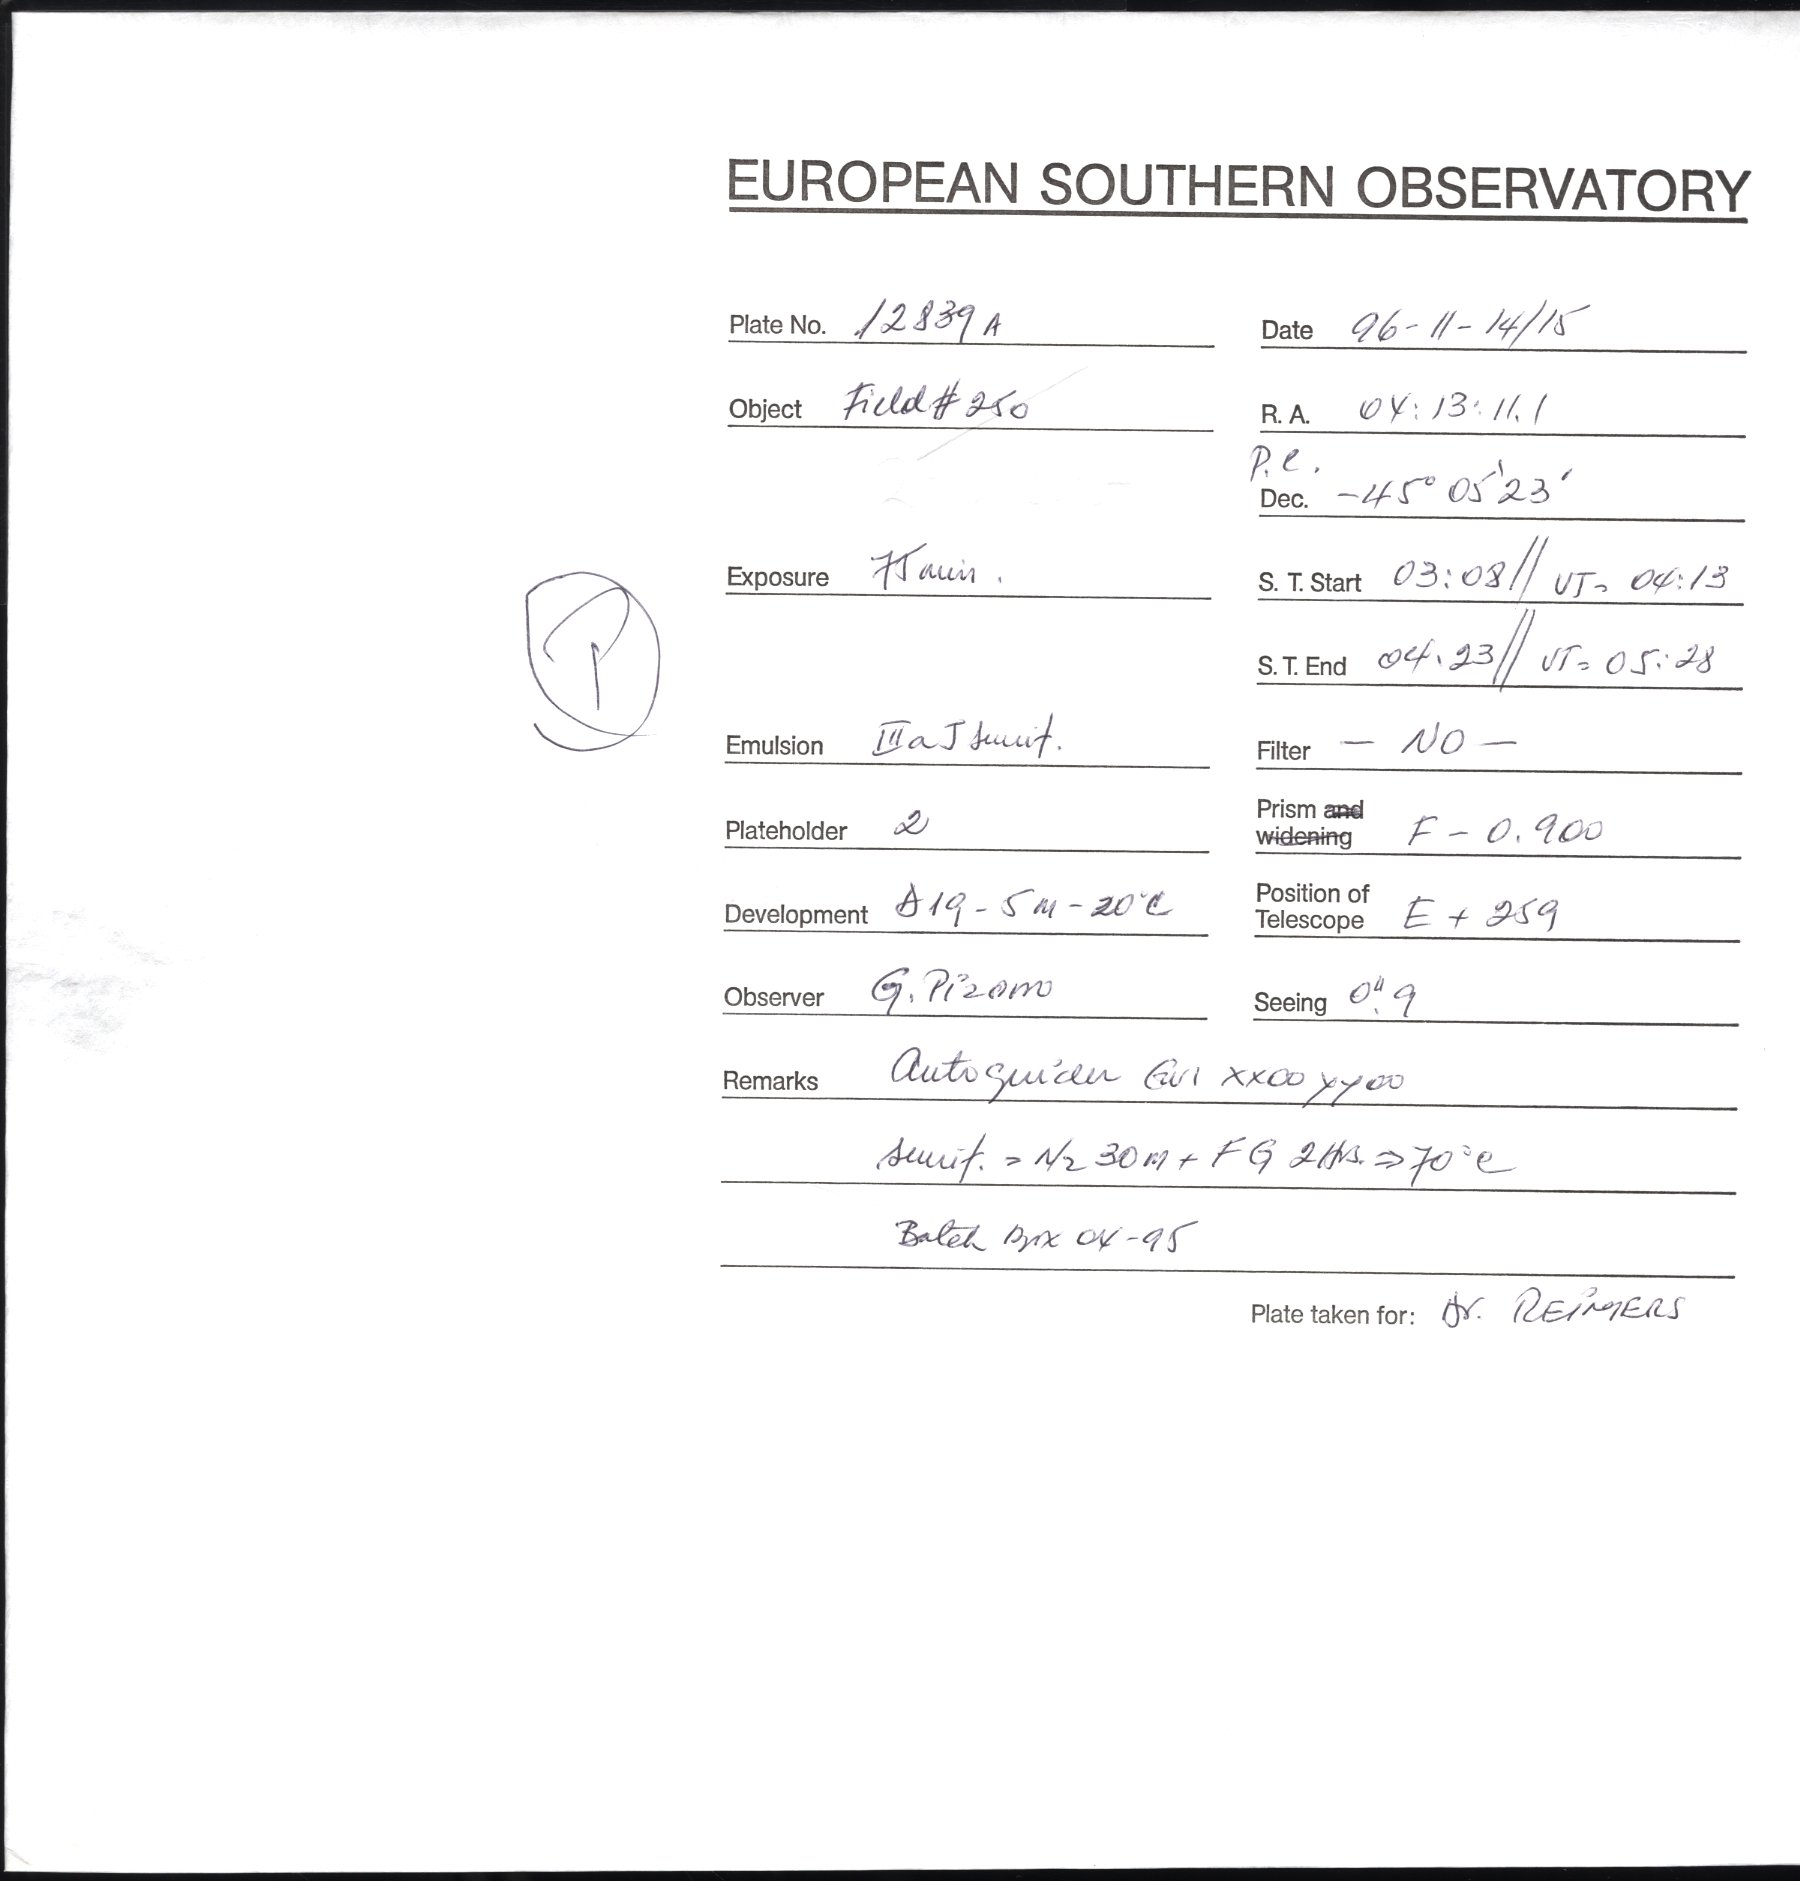 EUROPEAN SOUTHERN OBSERVATORY
Plate No. 12839 A
Date 96-11-14/15
Object Field # 250
R. A. 04:13:11.1
P.C.
Dec. -45° 05' 23'
Exposure 75 min.
S. T. Start 03:08 // UT= 04:13
S. T. End 04.23 // UT= 05:28
P
Emulsion IIIaJ
Filter — NO —
Plateholder 2
Prism and widening F - 0.900
Development D19 - 5m - 20°C
Position of Telescope E + 259
Observer G. Pizarro
Seeing 0".9
Remarks Autoguider XX00 YY00
= N2 30m + FG 2Hrs. ⇒ 70°C
Batch Box 04-95
Plate taken for: Dr. REIMERS